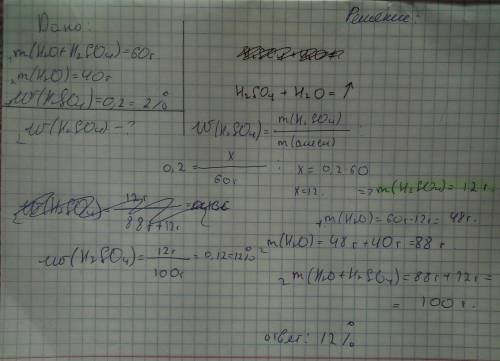 Дано:
₁m(H₂O+H₂SO₄)=60г
₂m(H₂O)=40г
₁w(H₂SO₄)=0,2=2%
₂w(H₂SO₄)-?
Решение:
H₂SO₄+H₂O=↑
w(H₂SO₄)=m(H₂SO₄)/m(смеси)
0,2=x/60г : x=0,2·60
x=12. => m(H₂SO₄)=12г.
₁m(H₂O)=60г-12г=48г.
₂m(H₂O)=48г+40г=88г
₂m(H₂O+H₂SO₄)=88г+12г=
=100г.
w(H₂SO₄)=12г/100г=0,12=12%
ответ: 12%